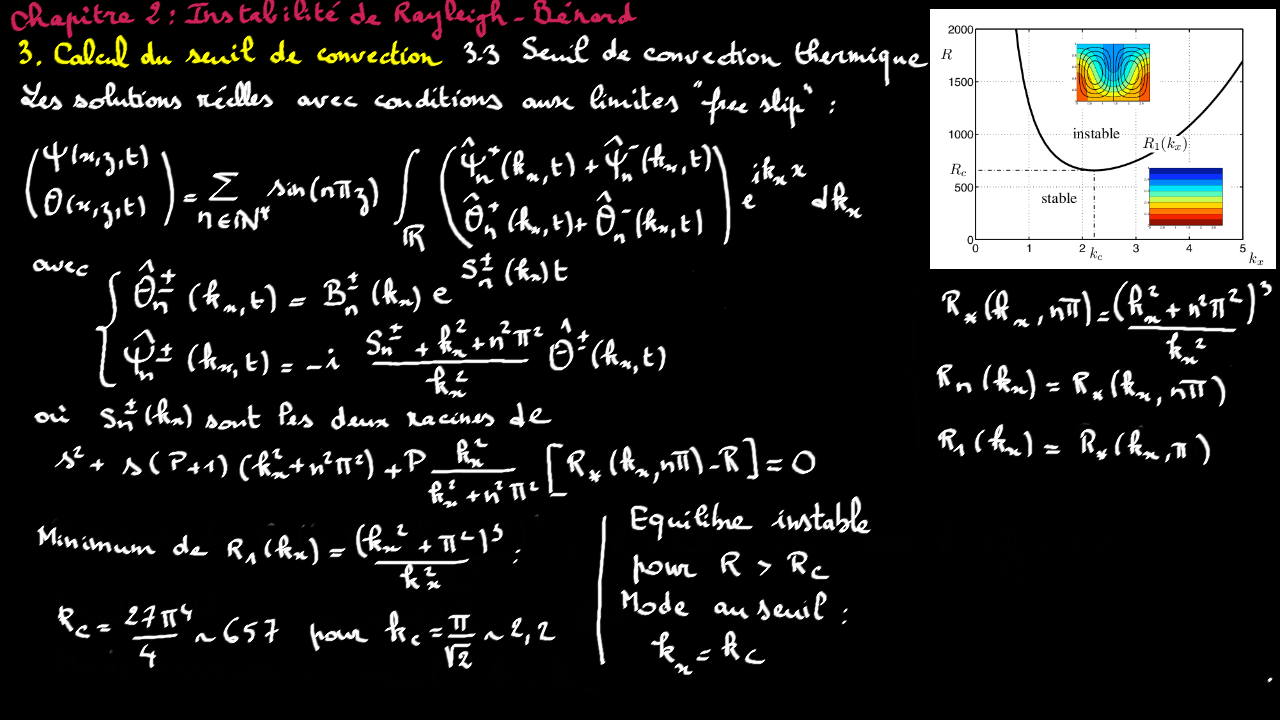 Chapitre 2 : Instabilité de Rayleigh - Bénard
3. Calcul du seuil de convection 3.3 Seuil de convection thermique
Les solutions réelles avec conditions aux limites "free slip" :
(Ψ(x,z,t) θ(x,z,t)) = Σ_{n∈ℕ*} sin(nπz) ∫_ℝ (Ψ̂_n^+(k_x,t) + Ψ̂_n^-(k_x,t) θ̂_n^+(k_x,t) + θ̂_n^-(k_x,t)) e^{ik_x x} dk_x
avec { θ̂_n^±(k_x,t) = B_n^±(k_x) e^{S_n^±(k_x)t}
Ψ̂_n^±(k_x,t) = -i (S_n^± + k_x^2 + n^2π^2)/k_x^2 θ̂^±(k_x,t)
où S_n^±(k_x) sont les deux racines de
s^2 + s(P+1)(k_x^2+n^2π^2) + P k_x^2/(k_x^2+n^2π^2) [R_*(k_x,nπ) - R] = 0
Minimum de R_1(k_x) = (k_x^2 + π^2)^3/k_x^2 :
R_c = 27π^4/4 ~ 657 pour k_c = π/√2 ~ 2,2
Equilibre instable
pour R > R_c
Mode au seuil :
k_x = k_c
2000
R
1500
instable
1000
R_1(k_x)
R_c
500
stable
0
0 1 2 k_c 3 4 5
k_x
R_*(k_x, nπ) = (k_x^2 + n^2π^2)^3/k_x^2
R_n(k_x) = R_*(k_x, nπ)
R_1(k_x) = R_*(k_x, π)